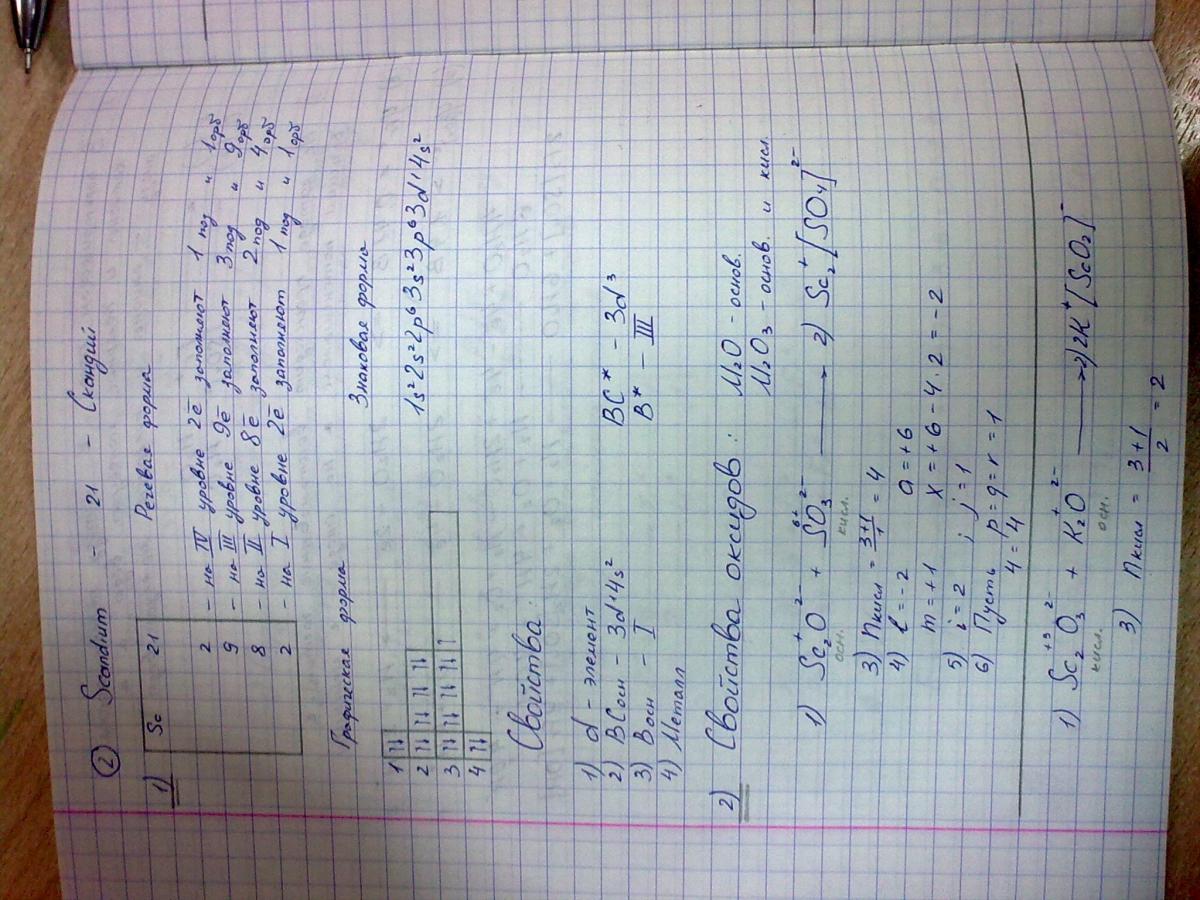 ② Scandium - 21 - Скандий
1) Речевая форма
Sc 21
2 - на IV уровне 2ē заполняют 1 под и 1 орб
9 - на III уровне 9ē заполняют 3 под и 9 орб
8 - на II уровне 8ē заполняют 2 под и 4 орб
2 - на I уровне 2ē заполняют 1 под и 1 орб
Графическая форма Знаковая форма
1 ↑↓
2 ↑↓ ↑↓ ↑↓ ↑↓ 1s²2s²2p⁶3s²3p⁶3d¹4s²
3 ↑↓ ↑↓ ↑↓ ↑↓ ↑
4 ↑↓
Свойства:
1) d - элемент
2) ВСосн - 3d¹4s² ВС* - 3d³
3) Восн - I В* - III
4) Металл
2) Свойства оксидов: M₂O - основ.
M₂O₃ - основ. и кисл.
1) Sc₂⁺O²⁻ + S⁶⁺O₃²⁻ ⟶ 2) Sc₂⁺[SO₄]²⁻
осн. кисл.
3) nкисл = (3+1)/1 = 4
4) l = -2 a = +6
m = +1 x = +6 - 4·2 = -2
5) i = 2 ; j = 1
6) Пусть p = q = r = 1
4 = 4
1) Sc₂⁺³O₃²⁻ + K₂⁺O²⁻ ⟶ 2) 2K⁺[ScO₂]⁻
кисл. осн.
3) nкисл = (3+1)/2 = 2